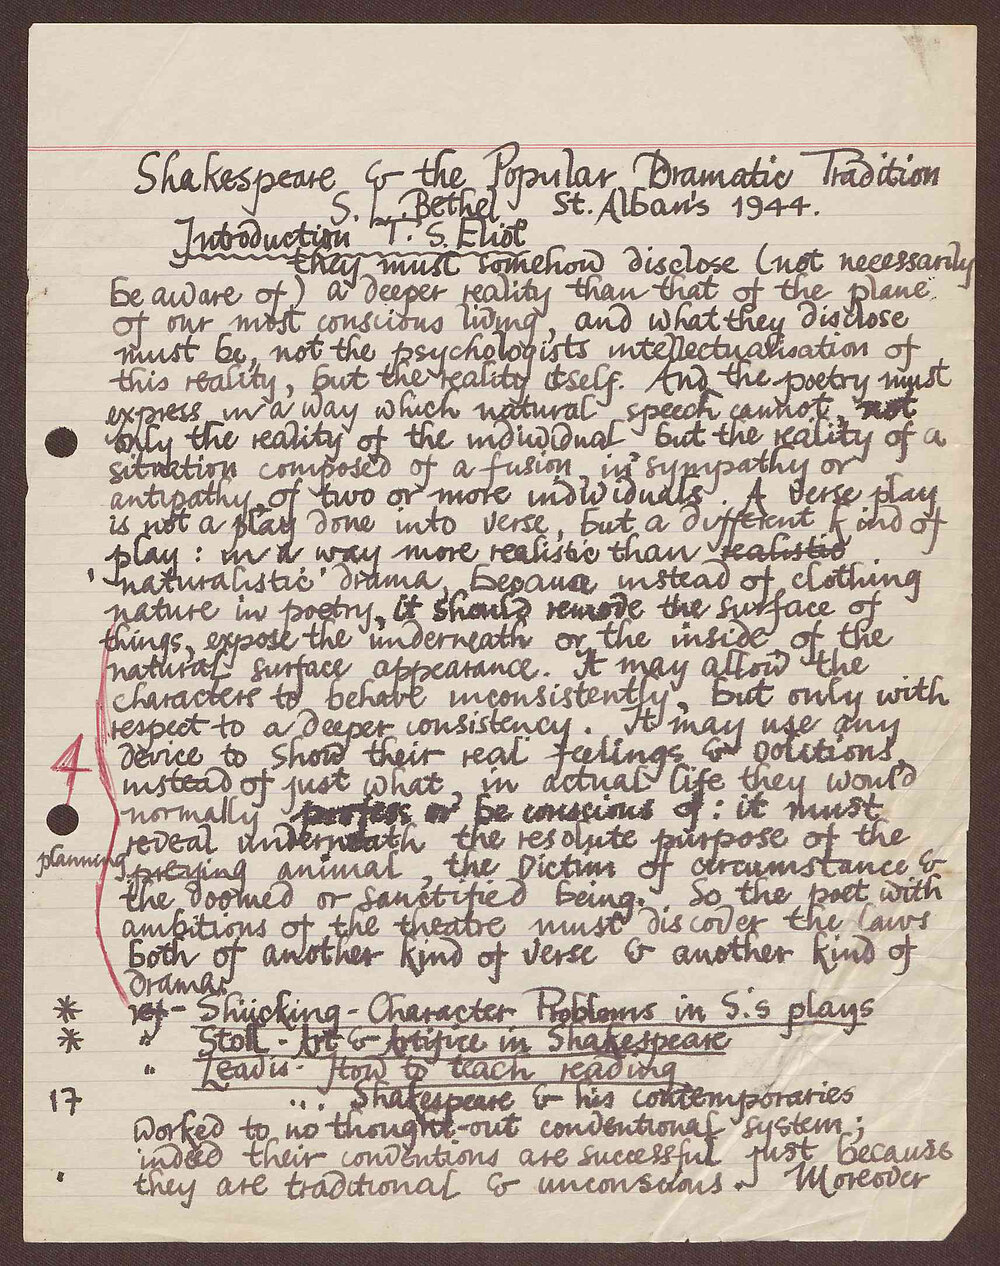 Shakespeare & the Popular Dramatic Tradition
S. L. Bethel St. Alban's 1944.
Introduction T. S. Eliot
they must somehow disclose (not necessarily
be aware of) a deeper reality than that of the plane
of our most conscious living, and what they disclose
must be, not the psychologists intellectualisation of
this reality, but the reality itself. And the poetry must
express in a way which natural speech cannot, not
only the reality of the individual but the reality of a
situation composed of a fusion, in sympathy or
antipathy, of two or more individuals. A verse play
is not a play done into verse, but a different kind of
play: in a way more realistic than realistic
'naturalistic' drama, because instead of clothing
nature in poetry, it should remove the surface of
things, expose the underneath or the inside, of the
natural surface appearance. It may allow the
characters to behave inconsistently, but only with
respect to a deeper consistency. It may use any
device to show their real feelings & volitions,
instead of just what, in actual life they would
4
normally profess or be conscious of: it must
reveal underneath the resolute purpose of the
planning preying animal, the victim of circumstance &
the doomed or sanctified being. So the poet with
ambitions of the theatre must discover the laws
both of another kind of verse & another kind of
drama.
* ref - Shücking - Character Problems in S.'s plays
* " Stoll - Art & Artifice in Shakespeare
" Leavis - How to teach reading
17 ... Shakespeare & his contemporaries
worked to no thought-out conventional system;
indeed their conventions are successful just because
they are traditional & unconscious. Moreover